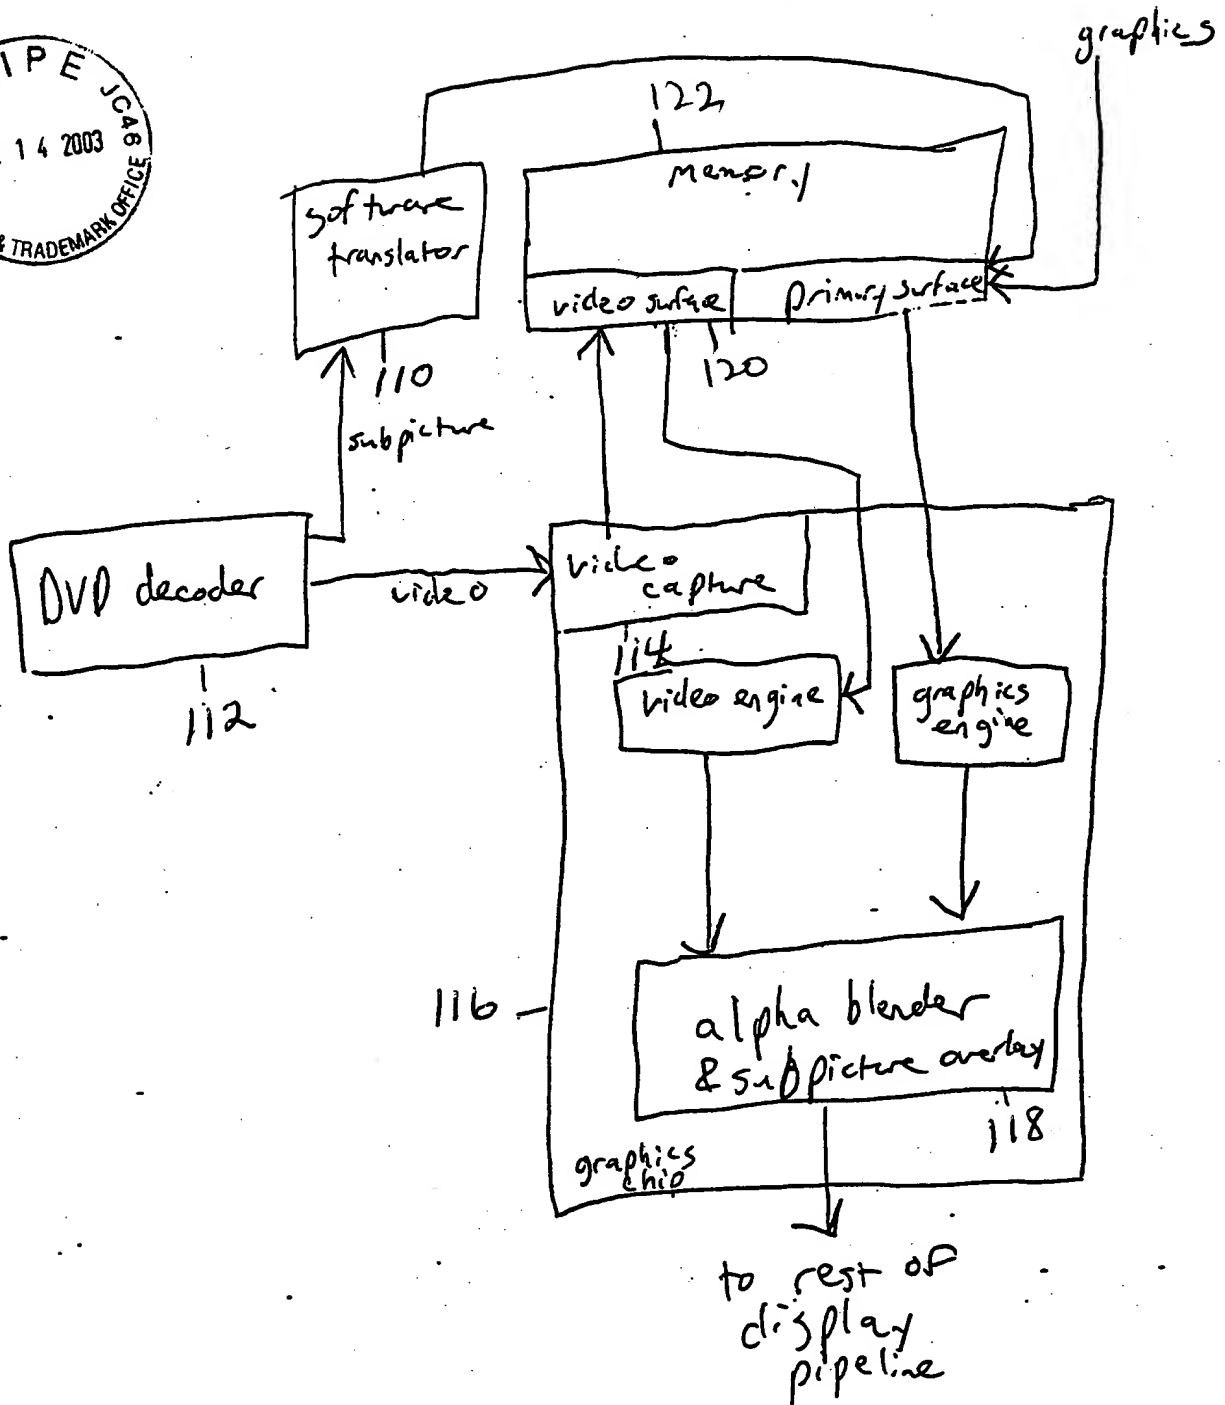 graphics
IPE JC46
14 2003
& TRADEMARK OFFICE
122
memory
software
translator
video surface
primary surface
110
120
subpicture
DVD decoder
video
video
capture
114
112
video engine
graphics
engine
116
alpha blender
& subpicture overlay
118
graphics
chip
to rest of
display
pipeline